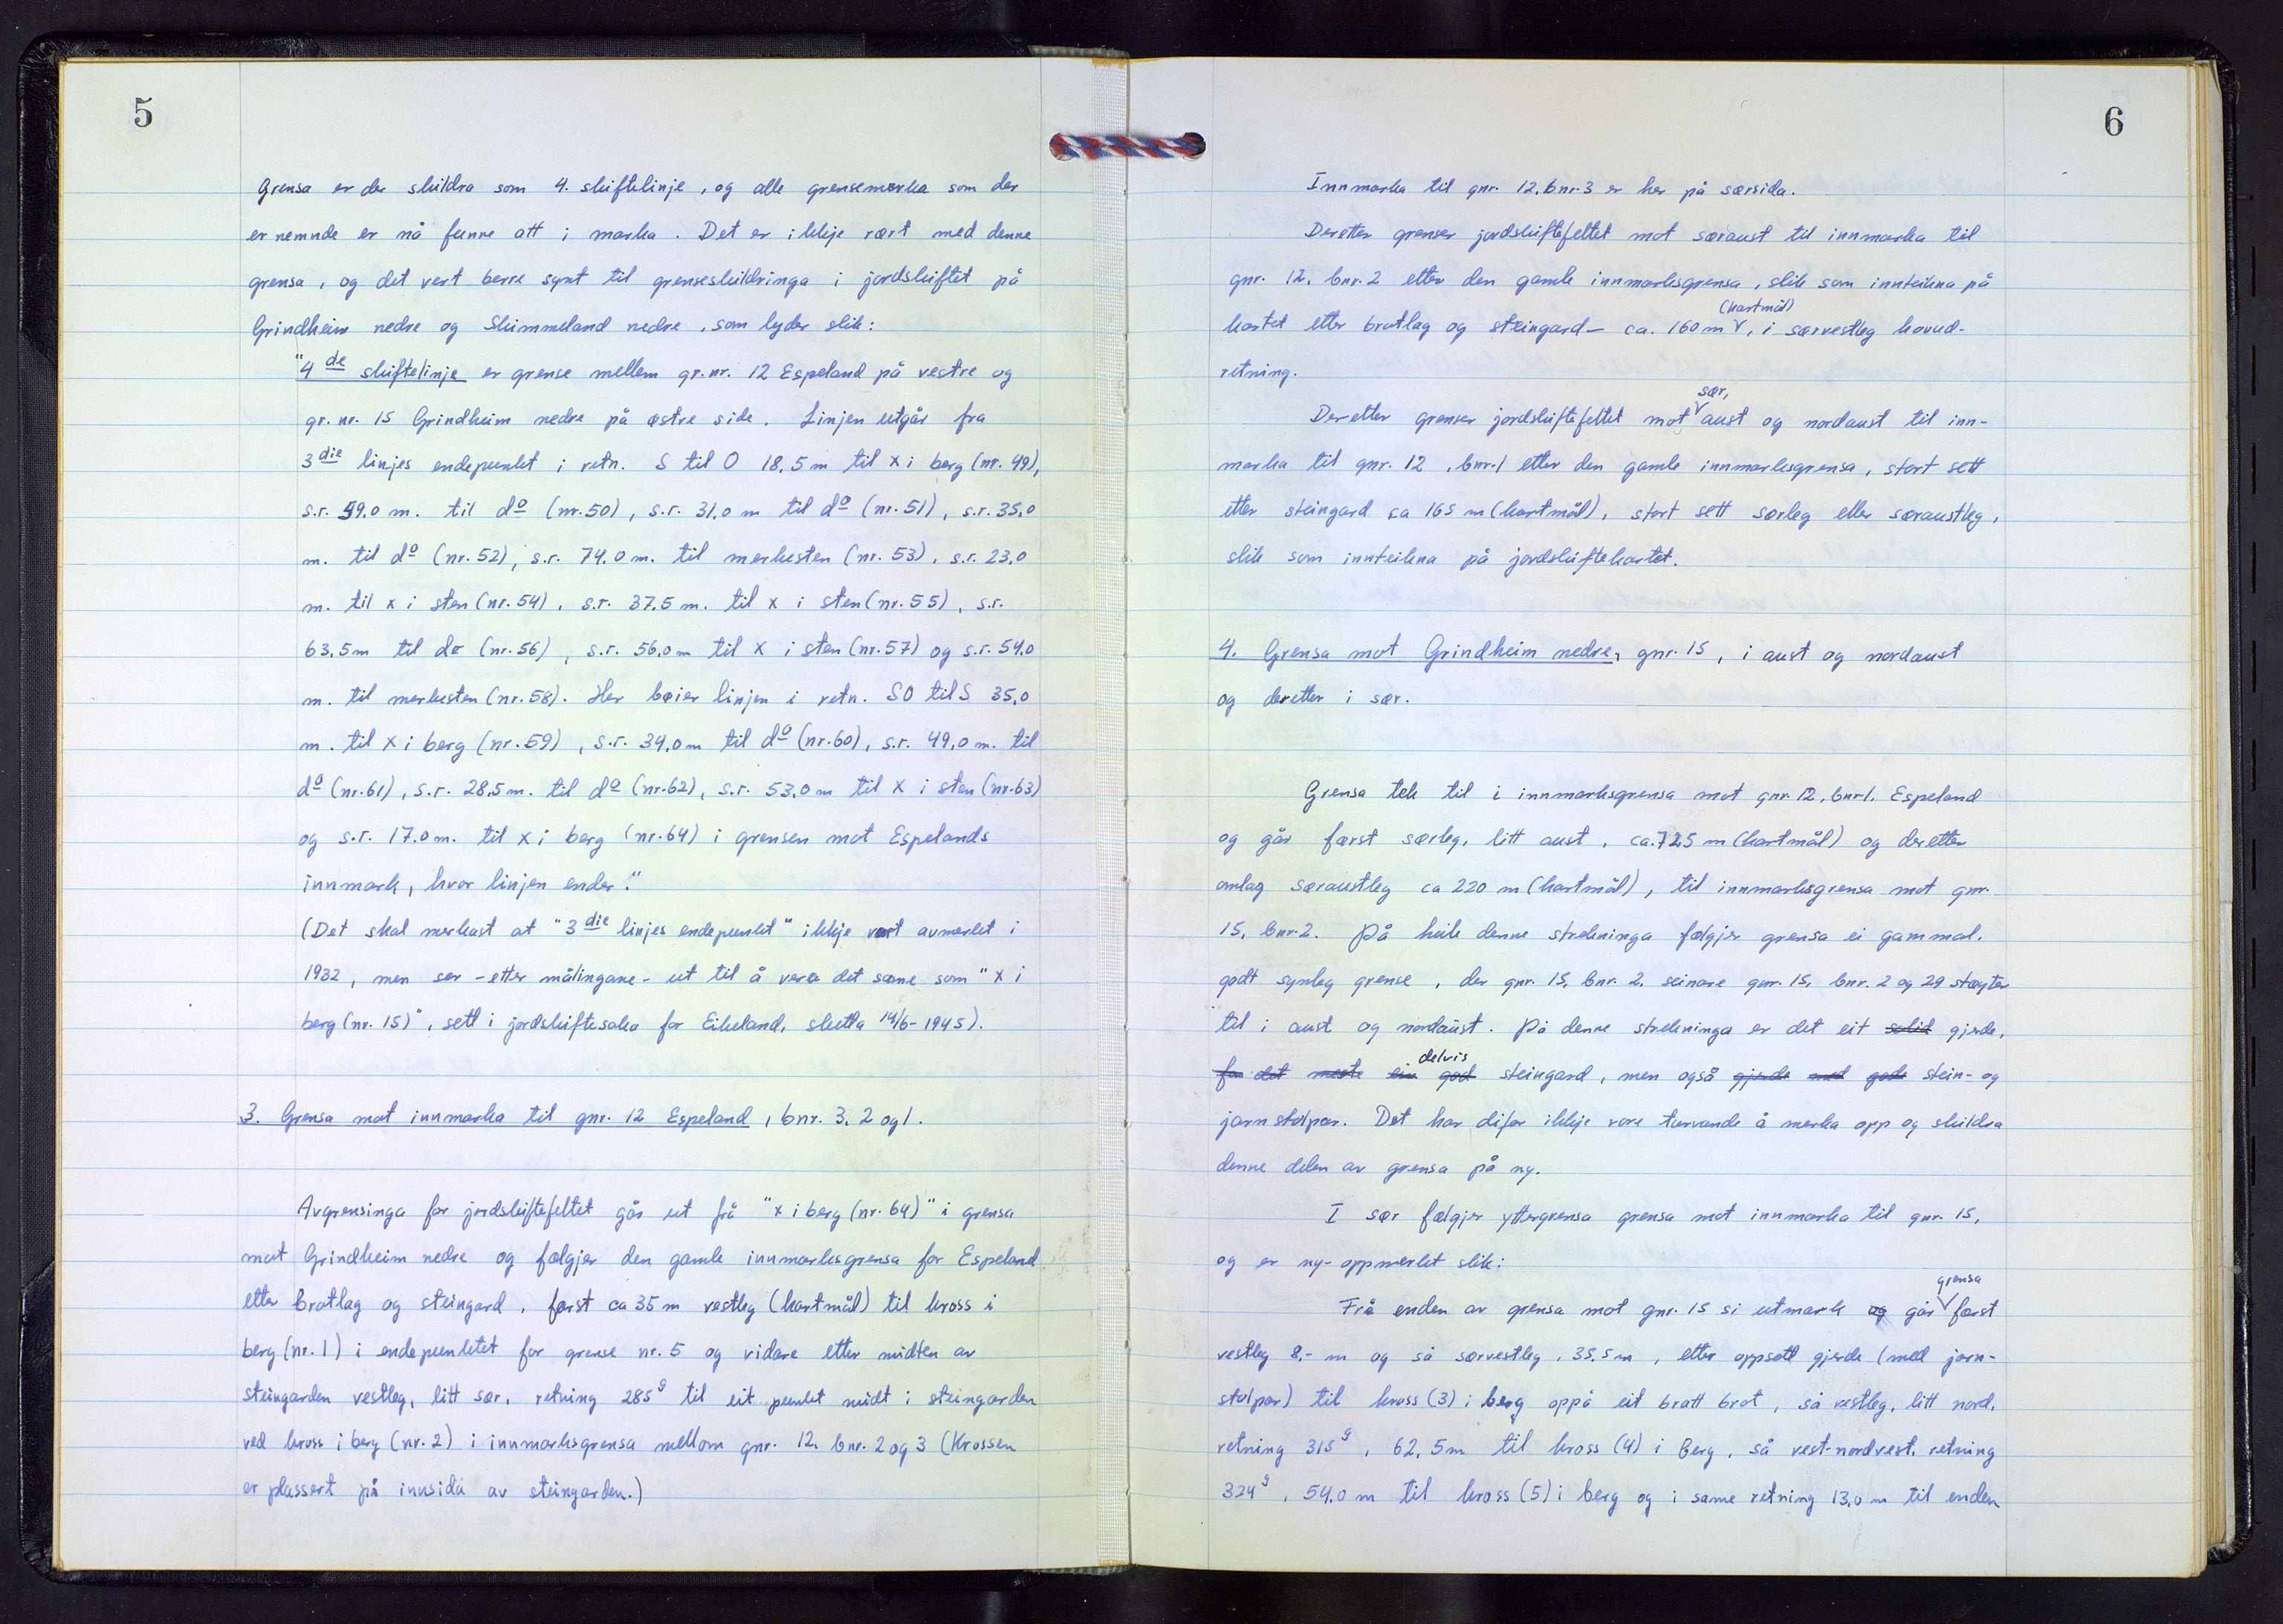 5
Grensa er der skildra som 4. skiftelinje, og alle grensemerka som der
er nemnde er nå funne att i marka. Det er ikkje rørt med denne
grensa, og det vert berre synt til grenseskildringa i jordskiftet på
Grindheim nedre og Skimmeland nedre, som lyder slik:
"4de skiftelinje er grense mellem gr.nr. 12 Espeland på vestre og
gr.nr. 15 Grindheim nedre på østre side. Linjen utgår fra
3die linjes endepunkt i retn. S til O 18,5 m til x i berg (nr. 49),
s.r. 59,0 m. til do (nr.50), s.r. 31,0 m til do (nr.51), s.r. 35,0
m. til do (nr.52), s.r. 74,0 m. til merkesten (nr. 53), s.r. 23,0
m. til x i sten (nr.54), s.r. 37,5 m. til x i sten (nr.55), s.r.
63,5 m til do (nr.56), s.r. 56,0 m til x i sten (nr.57) og s.r. 54,0
m. til merkesten (nr.58). Her bøier linjen i retn. SO til S 35,0
m. til x i berg (nr.59), s.r. 34,0 m til do (nr.60), s.r. 49,0 m. til
do (nr.61), s.r. 28,5 m. til do (nr.62), s.r. 53,0 m til x i sten (nr.63)
og s.r. 17,0 m. til x i berg (nr.64) i grensen mot Espelands
innmark, hvor linjen ender."
(Det skal merkast at "3die linjes endepunkt" ikkje vart avmerket i
1932, men ser - etter målingane - ut til å vera det same som "x i
berg (nr. 15)", sett i jordskiftesaka for Eikeland, slutta 14/6-1945).
3. Grensa mot innmarka til gnr. 12 Espeland, bnr. 3, 2 og 1.
Avgrensinga for jordskiftefeltet går ut frå "x i berg (nr. 64)" i grensa
mot Grindheim nedre og følgjer den gamle innmarksgrensa for Espeland
etter brotlag og steingard, først ca 35 m vestleg (kartmål) til kross i
berg (nr. 1) i endepunktet for grense nr. 5 og vidare etter midten av
steingarden vestleg, litt sør, retning 285g til eit punkt midt i steingarden
ved kross i berg (nr. 2) i innmarksgrensa mellom gnr. 12, bnr. 2 og 3 (Krossen
er plassert på innsida av steingarden.)
6
Innmarka til gnr. 12, bnr. 3 er her på sørsida.
Deretter grenser jordskiftefeltet mot søraust til innmarka til
gnr. 12, bnr. 2 etter den gamle innmarksgrensa, slik som innteikna på
(kartmål)
kartet etter brotlag og steingard - ca. 160 m, i sørvestleg hovud-
retning.
sør,
Deretter grenser jordskiftefeltet mot aust og nordaust til inn-
marka til gnr. 12, bnr. 1 etter den gamle innmarksgrensa, stort sett
etter steingard ca 165 m (kartmål), stort sett sørleg eller søraustleg,
slik som innteikna på jordskiftekartet.
4. Grensa mot Grindheim nedre, gnr. 15, i aust og nordaust
og deretter i sør.
Grensa tek til i innmarksgrensa mot gnr. 12, bnr. 1, Espeland
og går først sørleg, litt aust, ca. 725 m (kartmål) og deretter
omlag søraustleg ca 220 m (kartmål), til innmarksgrensa mot gnr.
15, bnr. 2. På heile denne strekninga følgjer grensa ei gammal,
godt synleg grense, der gnr. 15, bnr. 2, seinare gnr. 15, bnr. 2 og 29 støyter
til i aust og nordaust. På denne strekninga er det eit solid gjerde,
delvis
for det meste ein god steingard, men også gjerde med gode stein- og
jarnstolpar. Det har difor ikkje vore turvande å merka opp og skildra
denne delen av grensa på ny.
I sør følgjer yttergrensa grensa mot innmarka til gnr. 15,
og er ny-oppmerket slik:
grensa
Frå enden av grensa mot gnr. 15 si utmark og går først
vestleg 8,- m og så sørvestleg, 35,5 m, etter oppsett gjerde (med jarn-
stolpar) til kross (3) i berg oppå eit bratt brot, så vestleg, litt nord,
retning 315g, 62,5 m til kross (4) i berg, så vest-nordvest, retning
324g, 54,0 m til kross (5) i berg og i same retning 13,0 m til enden